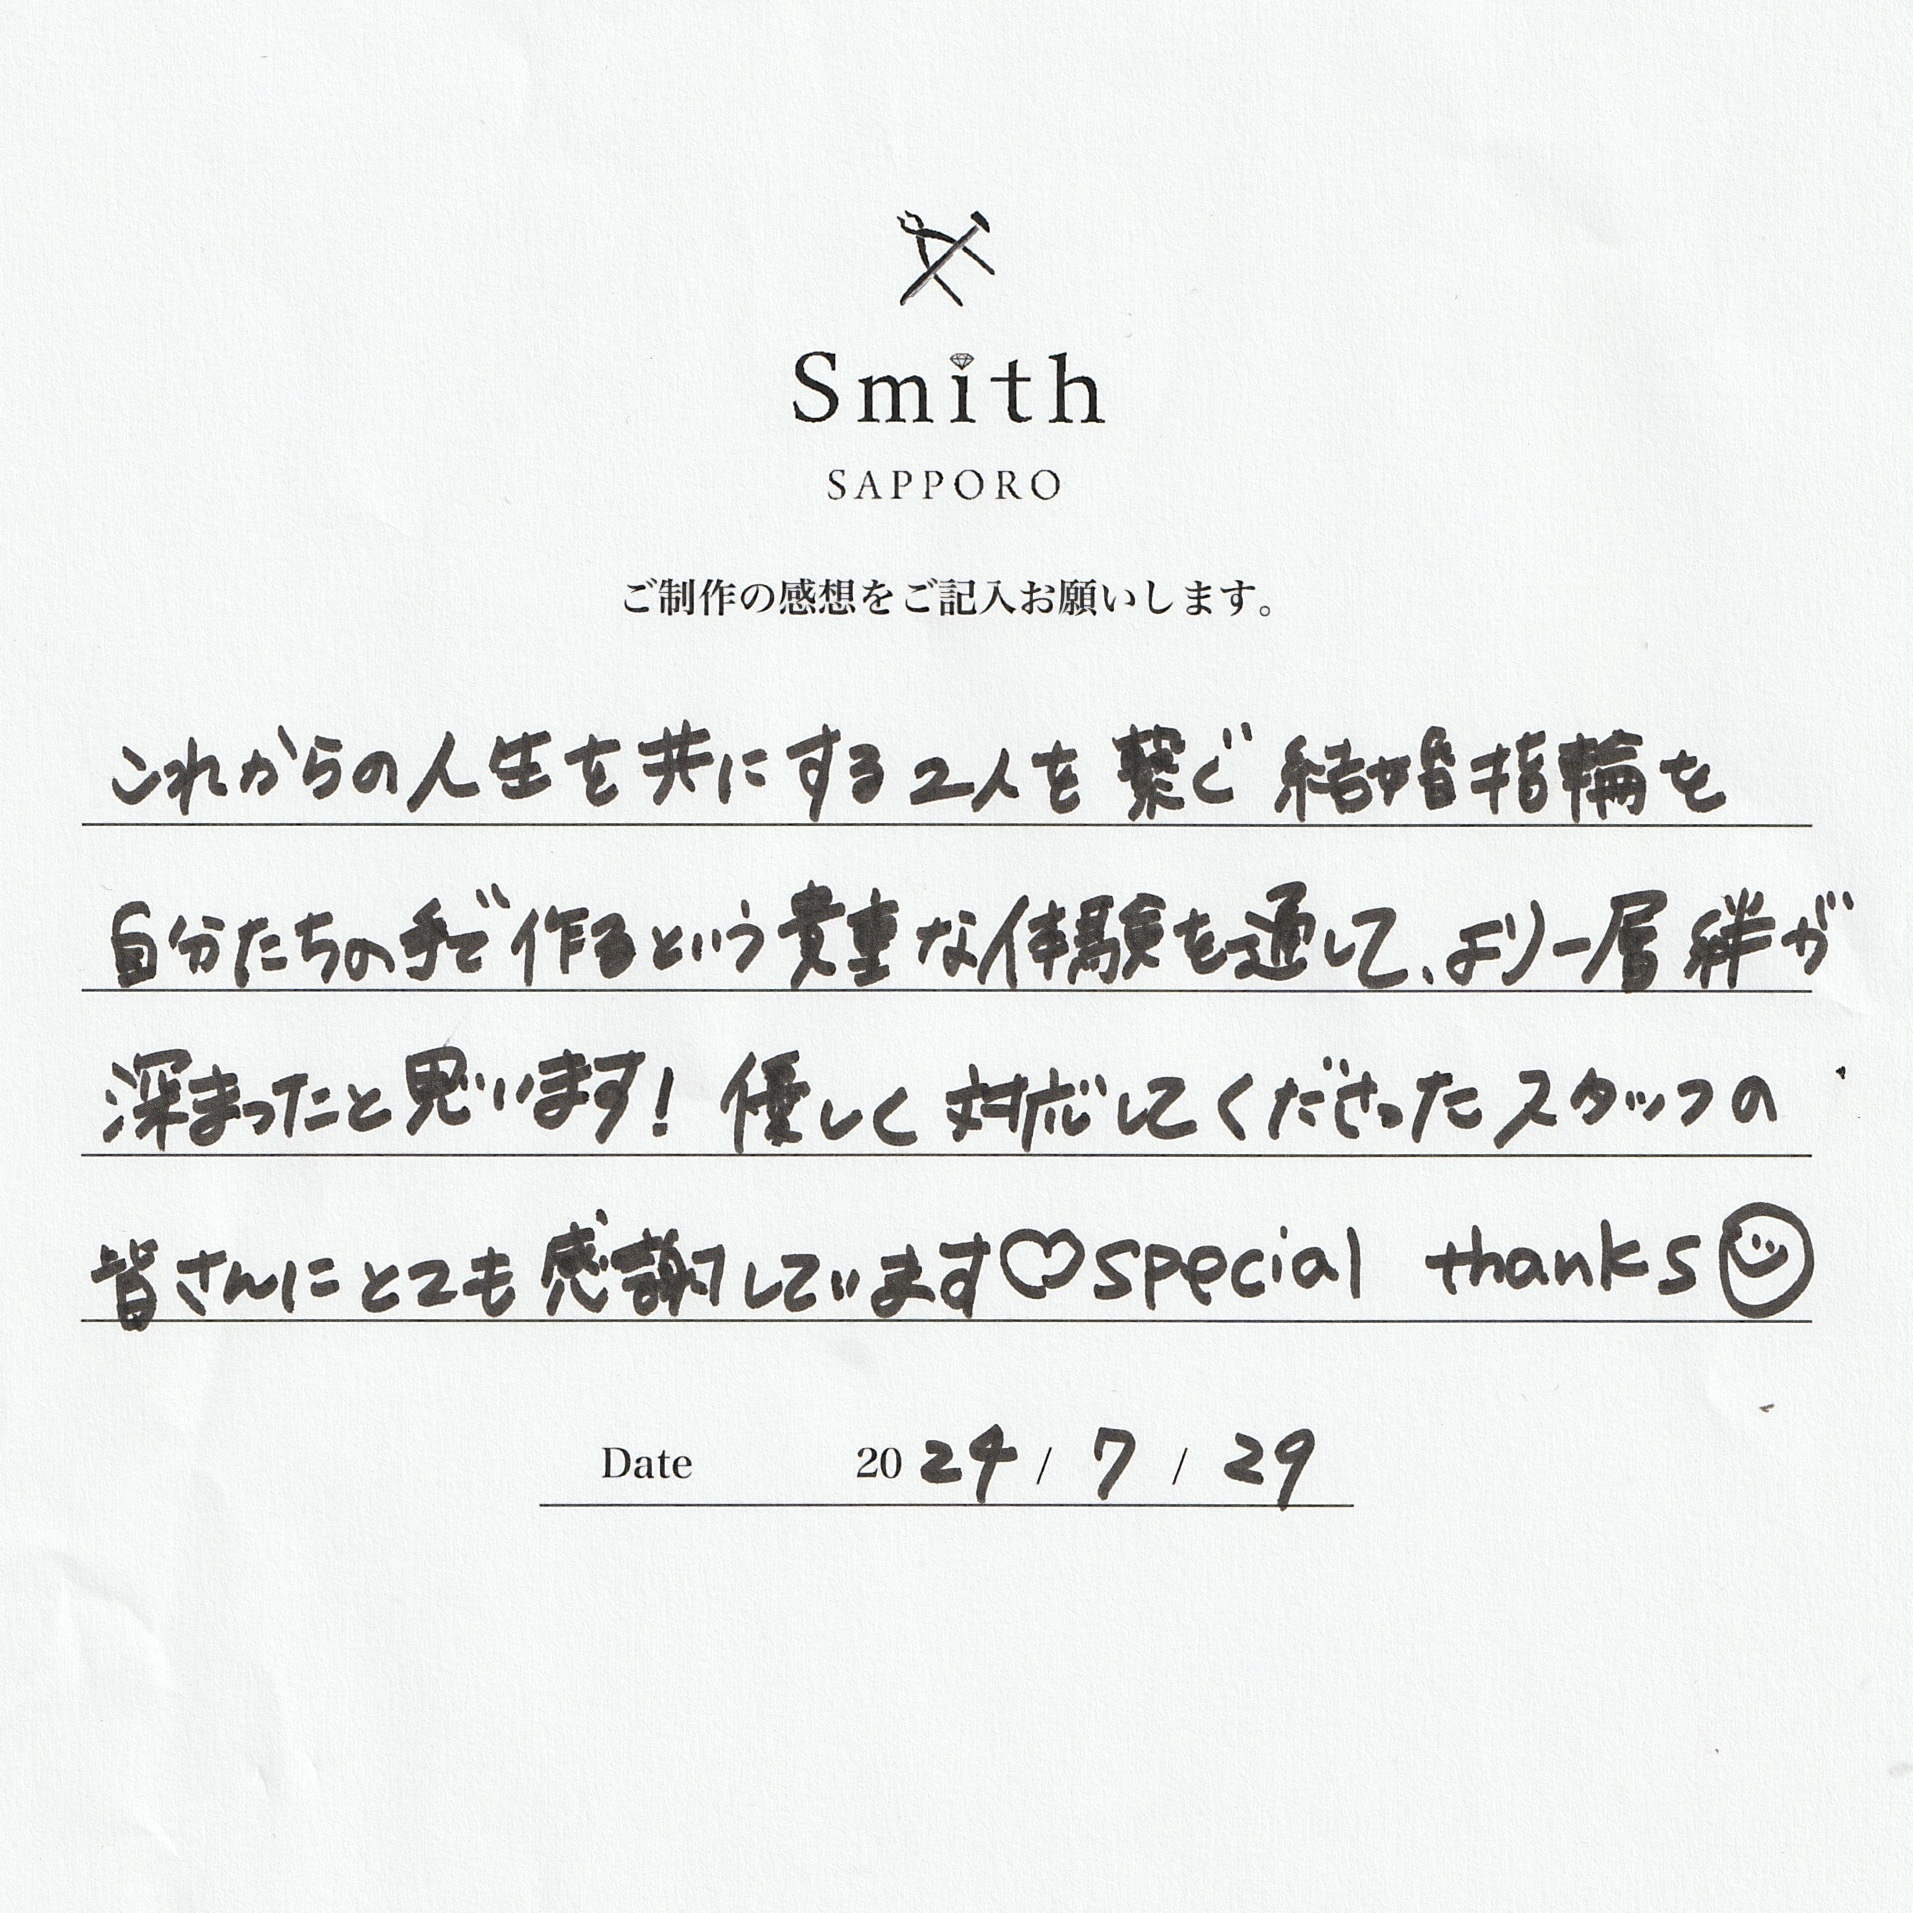 Smith
SAPPORO
ご制作の感想をご記入お願いします。
これからの人生を共にする2人を繋ぐ結婚指輪を
自分たちの手で作るという貴重な体験を通して、より一層絆が
深まったと思います！優しく対応してくださったスタッフの
皆さんにとても感謝しています♡special thanks☺
Date 2024 / 7 / 29